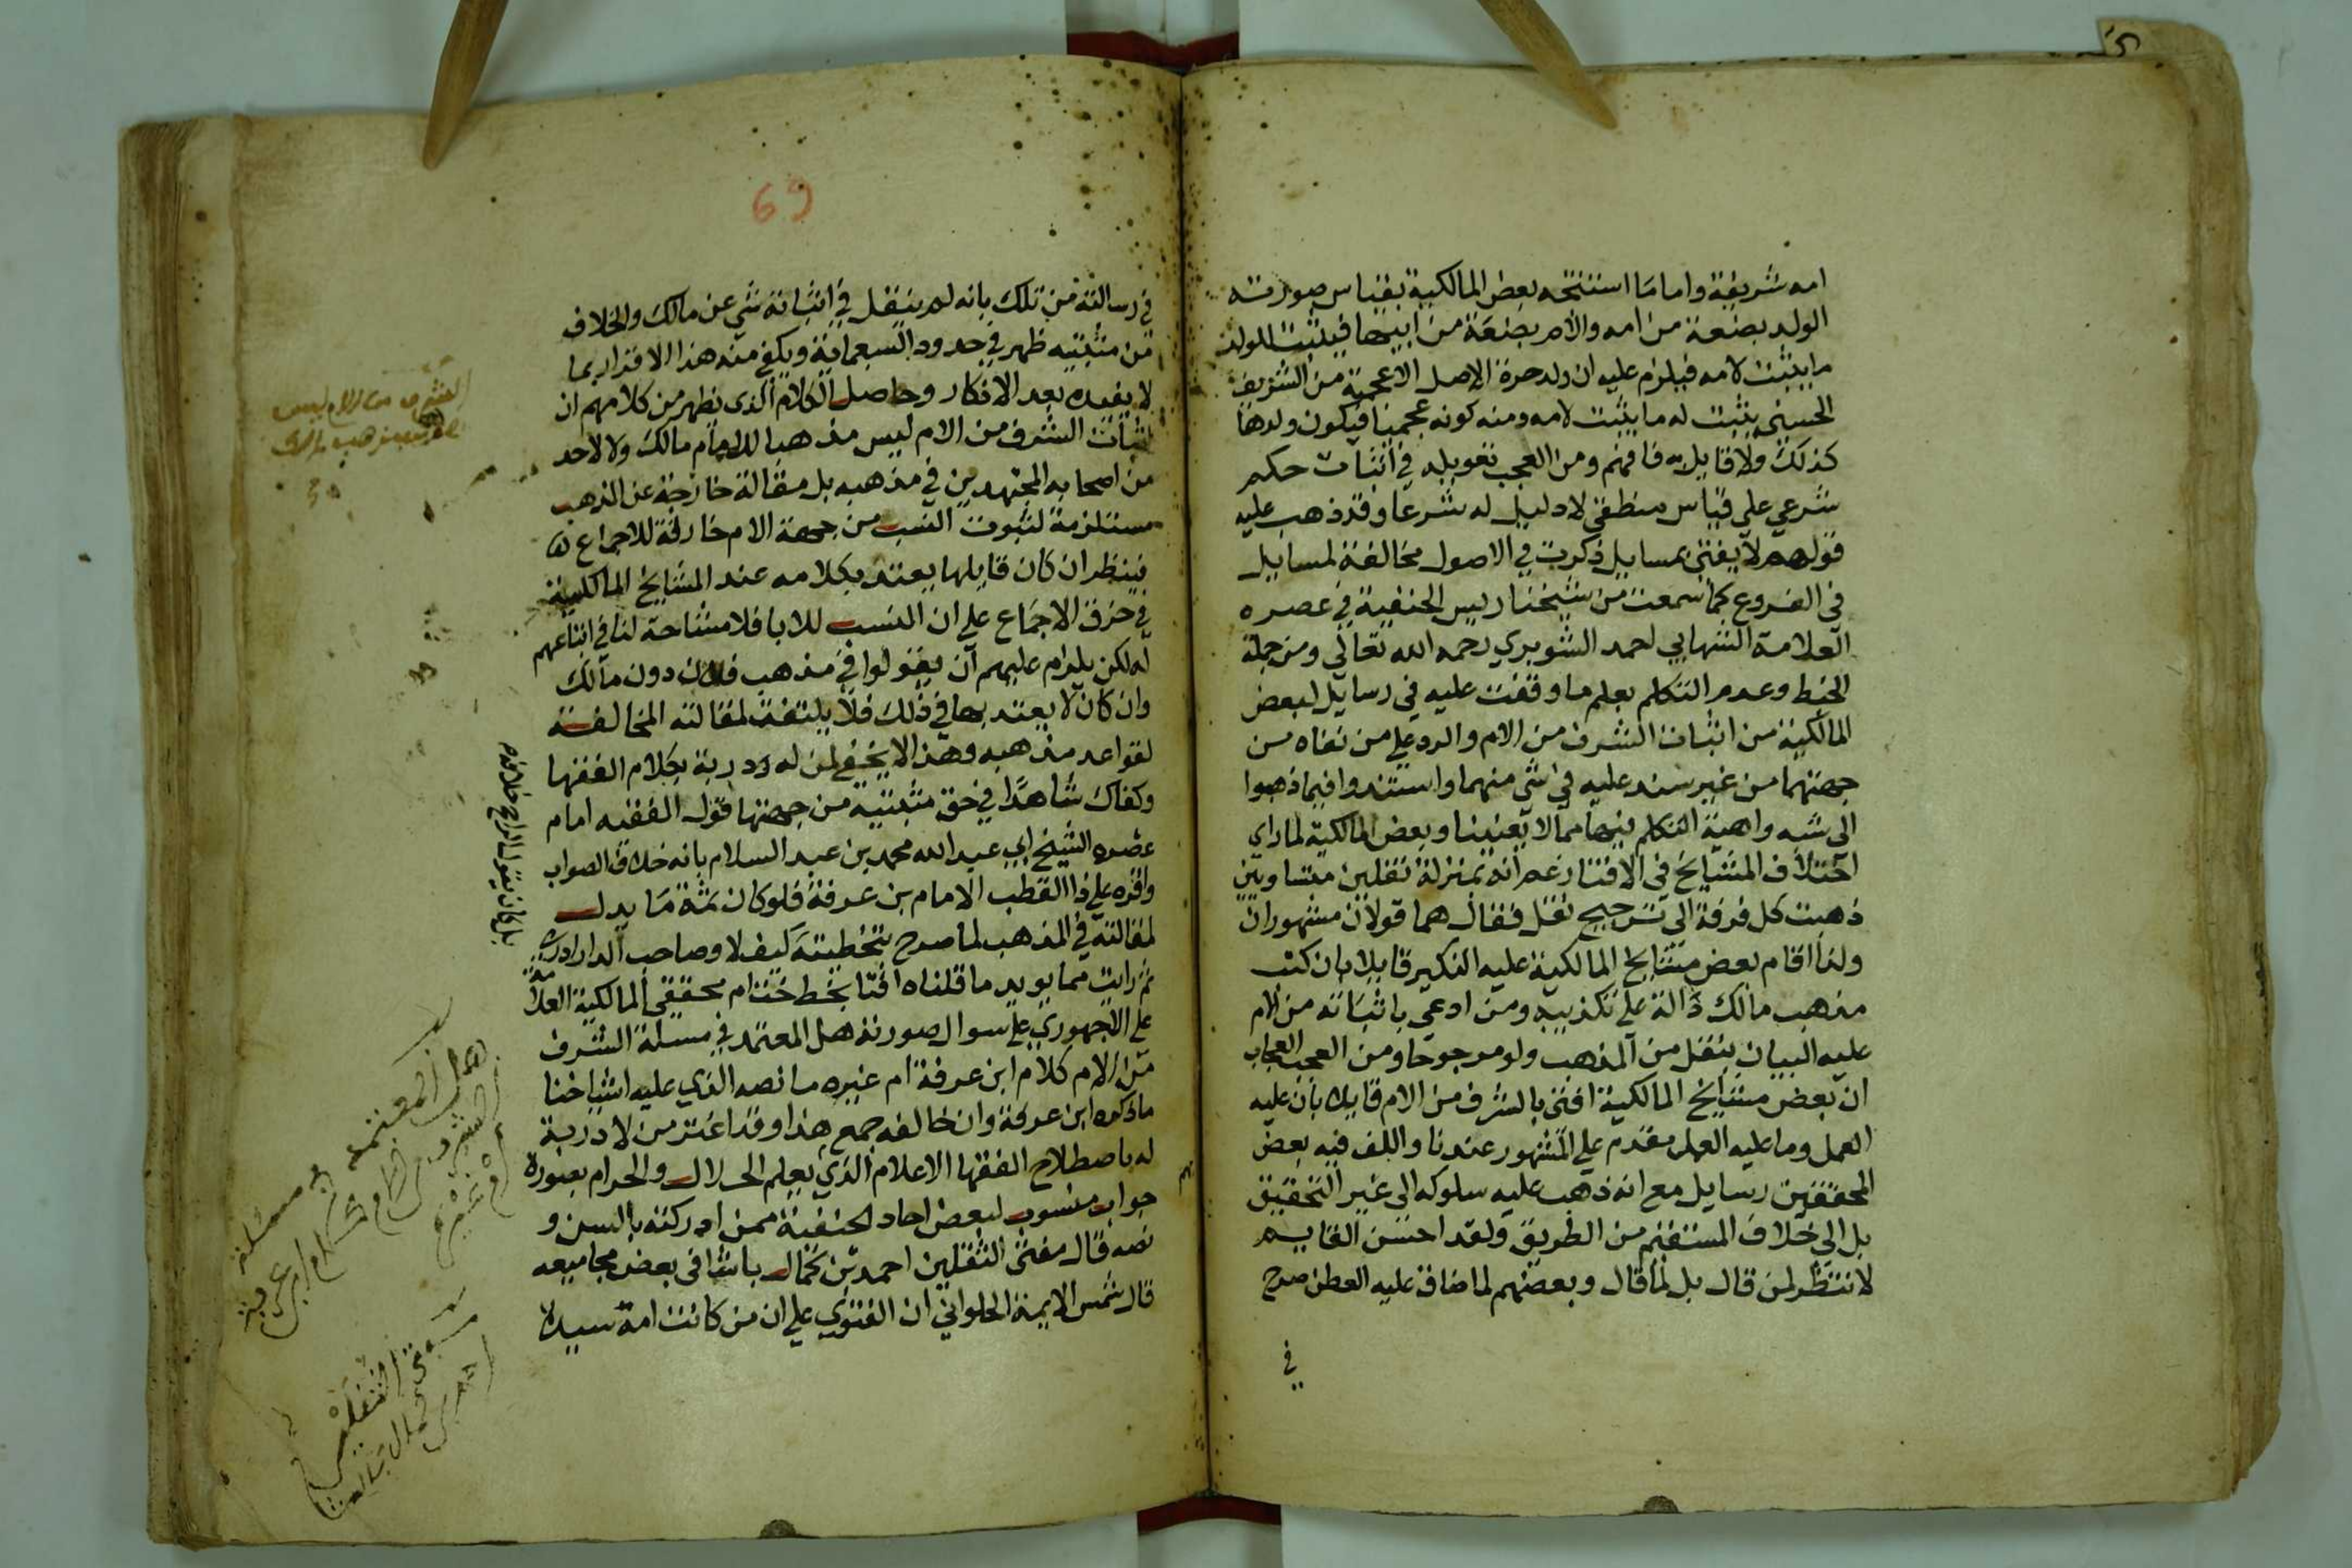 امه شريفة واما ما استنتجه بعض المالكية بقياس صورته
الولد بضعة من امه والام بضعة من ابيها فيثبت للولد
ما يثبت لامه فيلزم عليه ان ولد حرة الاصل الاعجمية من الشريف
الحسيني يثبت له ما يثبت لامه ومنه كونه عجميا فيكون ولدها
كذلك ولا قايل به فافهم ومن العجب تعويله في اثبات حكم
شرعي علي قياس منطقي لا دليل له شرعا وقد ذهب عليه
قولهم لا يفتى بمسايل ذكرت في الاصول مخالفة لمسايل
في الفروع كما سمعت من شيخنا رييس الحنفية في عصره
العلامة الشهابي احمد الشوبري رحمه الله تعالي ومن جملة
الخبط وعدم التكلم بعلم ما وقفت عليه في رسايل لبعض
المالكية من اثبات الشرف من الام والرد علي من نفاه من
جهتهما من غير سند عليه في شي منهما واستندوا فيما ذهبوا
الى شبه واهية التكلم فيها مما لا يعنينا وبعض المالكية لما راي
اختلاف المشايخ في الافتا زعم انه بمنزلة نقلين متساويين
ذهبت كل فرقة الى ترجيح نقل فقال هما قولان مشهوران
ولذا اقام بعض مشايخ المالكية عليه النكير قايلا بان كتب
مذهب مالك دالة على تكذيبه ومن ادعي باثباته من الام
عليه البيان بنقل من المذهب ولو مرجوحا ومن العجب العجاب
ان بعض مشايخ المالكية افتى بالشرف من الام قايلا بان عليه
العمل وما عليه العمل مقدم علي المشهور عندنا والف فيه بعض
المحققين رسايل مع انه ذهب عليه سلوكه الى غير التحقيق
بل الي خلاف المستقيم من الطريق ولقد احسن القايل
لا تنظر لمن قال بل لما قال وبعضهم لما ضاق عليه العطن صرح
في
69
في رسالته من تلك بانه لم ينقل في اثباته شي عن مالك والخلاف
من مثبتيه ظهر في حدود السبعماية ويكفي منه هذا الاقرار بما
لا يفيده بعد الانكار وحاصل الكلام الذى نظهر من كلامهم ان
اثبات الشرف من الام ليس مذهبا للامام مالك ولا لاحد
من اصحابه المجتهدين في مذهبه بل مقالة خارجة عن المذهب
مستلزمة لثبوت النسب من جهة الام خارقة للاجماع
فينظر ان كان قايلها يعتد بكلامه عند المشايخ المالكية
في خرق الاجماع علي ان النسب للابا فلا مشاحة لنا في اتباعهم
له لكن يلزم عليهم ان يقولوا في مذهب فلان دون مالك
وان كان لا يعتد بها في ذلك فلا يلتفت لمقالته المخالفة
لقواعد مذهبه وهذا لا يخفي لمن له دربة بكلام الفقها
وكفاك شاهدا في حق مثبتيه من جهتها قول الفقيه امام
عصره الشيخ ابي عبد الله محمد بن عبد السلام بانه خلاف الصواب
واقره علي ذا القطب الامام بن عرفة فلو كان ثمة ما يدل
لمقالته في المذهب لما صرح بتخطيته كيف لا وصاحب الدار ادرى
ثم رايت مما يويد ما قلناه افتا بخط ختام محققي المالكية العلامة
علي الاجهوري علي سوال صورته هل المعتمد في مسيلة الشرف
من الام كلام ابن عرفة ام غيره ما نصه الذي عليه اشياخنا
ما ذكره ابن عرفة وان خالفه جمع هذا وقد اغتر من لا دربة
له باصطلاح الفقها الاعلام الذي بعلم الحلال والحرام بصورة
جواب منسوب لبعض احاد الحنفية ممن ادركته بالسن و
نصه قال مفتى الثقلين احمد بن كمال باشا في بعض مجاميعه
قال شمس الايمة الحلواني ان الفتوي علي ان من كانت امه سيدة
الشرف من الام ليس
هل المعتمد في مسئلة
الشرف من الام كلام ابن عرفة
ام غيره
مفتى الثقلين